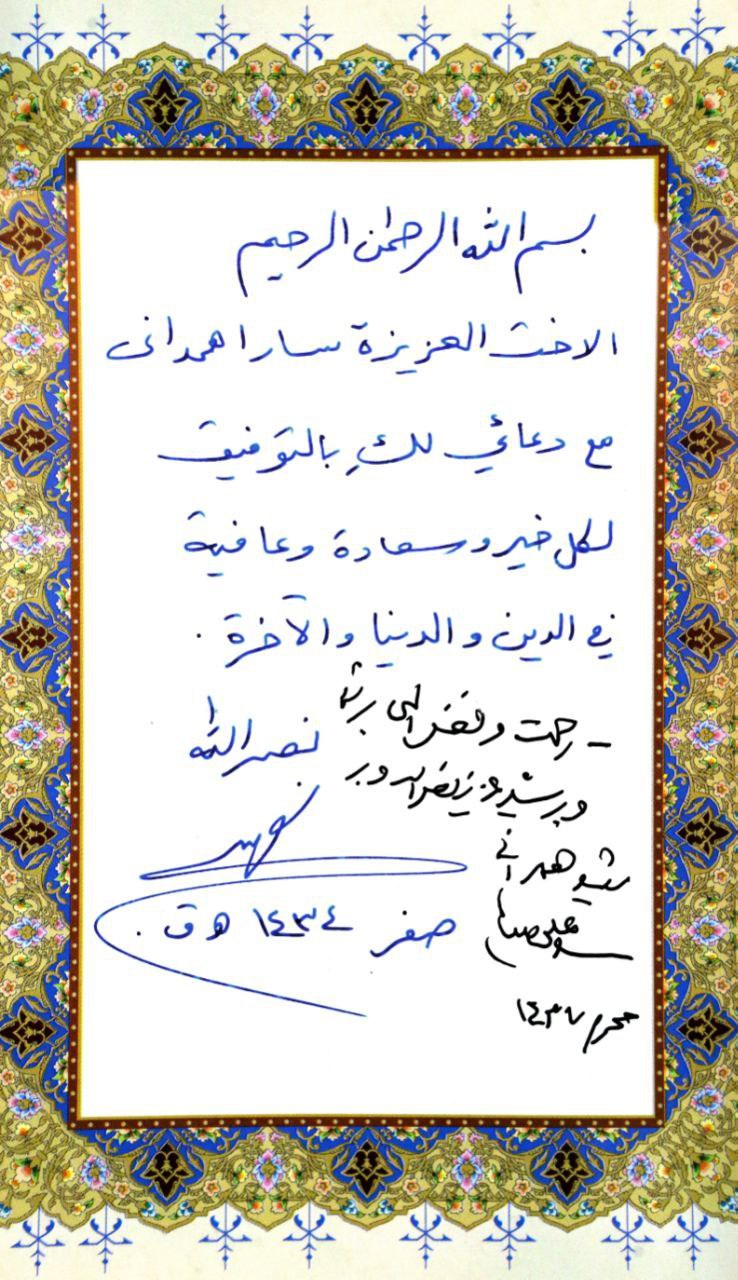 بسم الله الرحمن الرحيم
الاخت العزيزة سارا همدانى
مع دعائي لكِ بالتوفيق
لكل خير وسعادة وعافية
في الدين والدنيا والآخرة .
نصر الله
صفر ١٤٣٤ هـ ق .
– رحمت و فضل الهى بر شما
و بر سيد عزيز نصر الله و بر
شهيد همدانى
سيد على
محرم ١٤٣٧